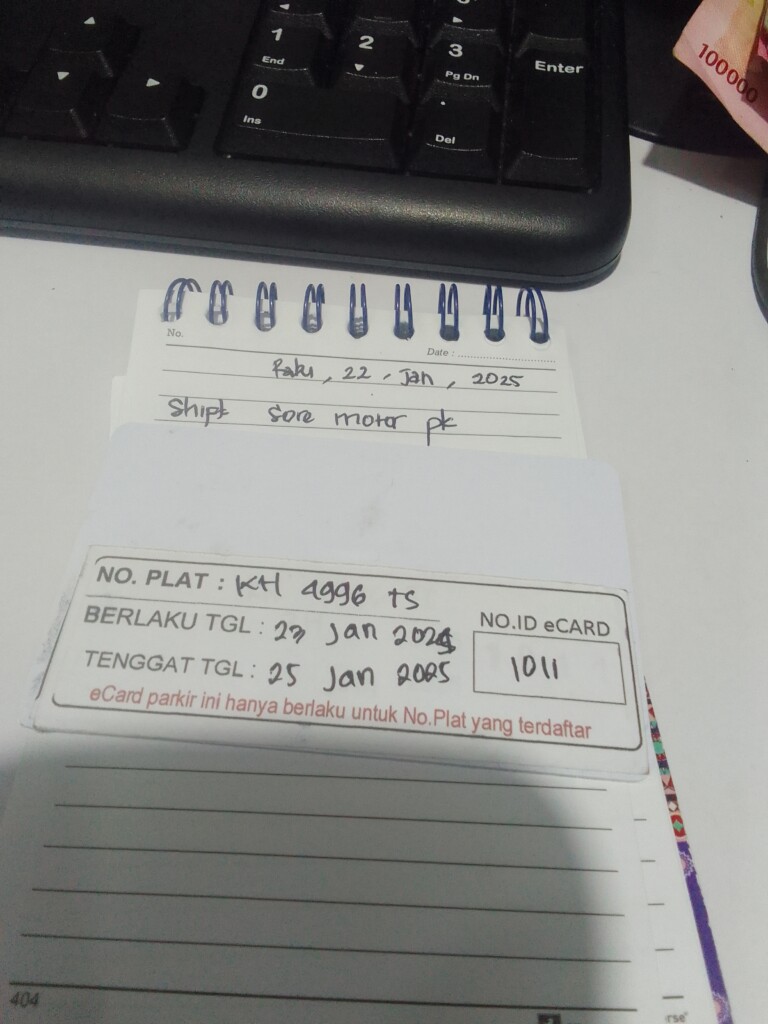 1
End
2
3
Pg Dn
Enter
0
Ins
.
Del
100000
No.
Date :
Rabu, 22, Jan, 2025
Shipt sore motor pk
NO. PLAT : KH 4996 TS
BERLAKU TGL : 23 Jan 2025
TENGGAT TGL : 25 Jan 2025
NO.ID eCARD
1011
eCard parkir ini hanya berlaku untuk No.Plat yang terdaftar
404